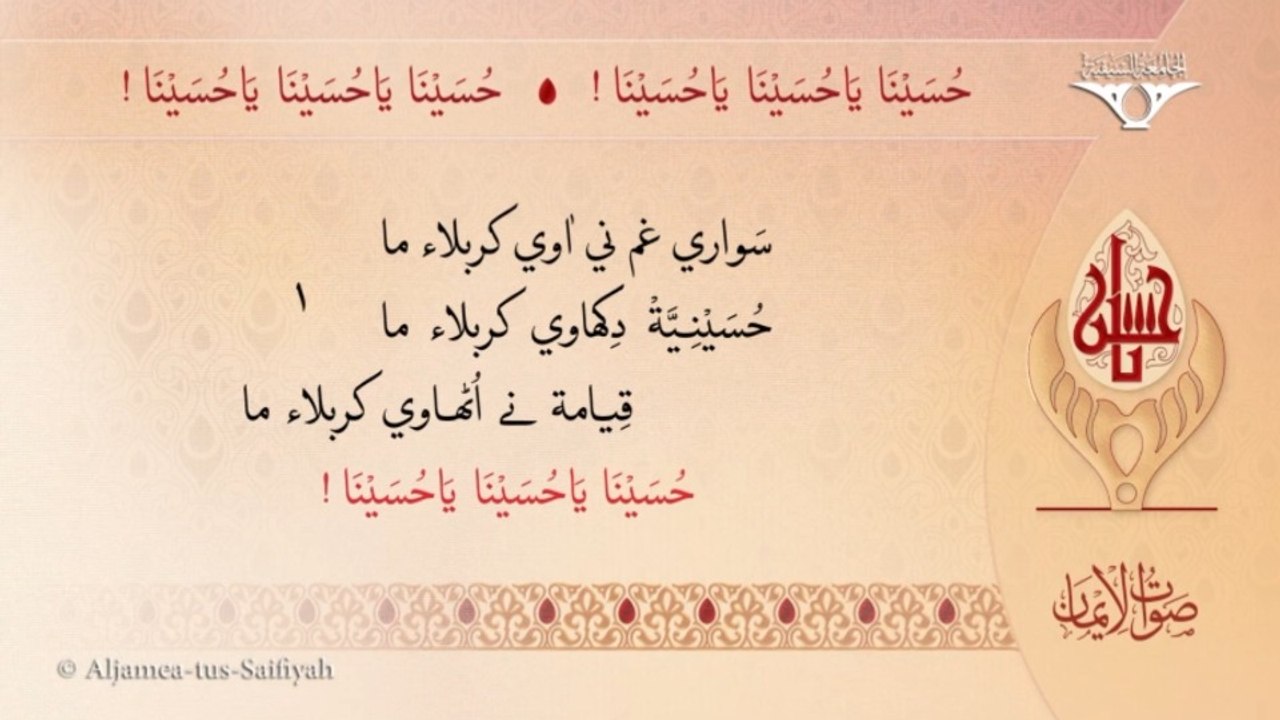 حُسَيْنَا يَاحُسَيْنَا يَاحُسَيْنَا ! حُسَيْنَا يَاحُسَيْنَا يَاحُسَيْنَا !
الجامعة السيفية
سَواري غم ني اٰوي كربلاء ما
حُسَيْنِيَّةْ دِكهاوي كربلاء ما
١
قِيامة نے اُٹهاوي كربلاء ما
حُسَيْنَا يَاحُسَيْنَا يَاحُسَيْنَا !
يا حسين
صوات الإيمان
© Aljamea-tus-Saifiyah